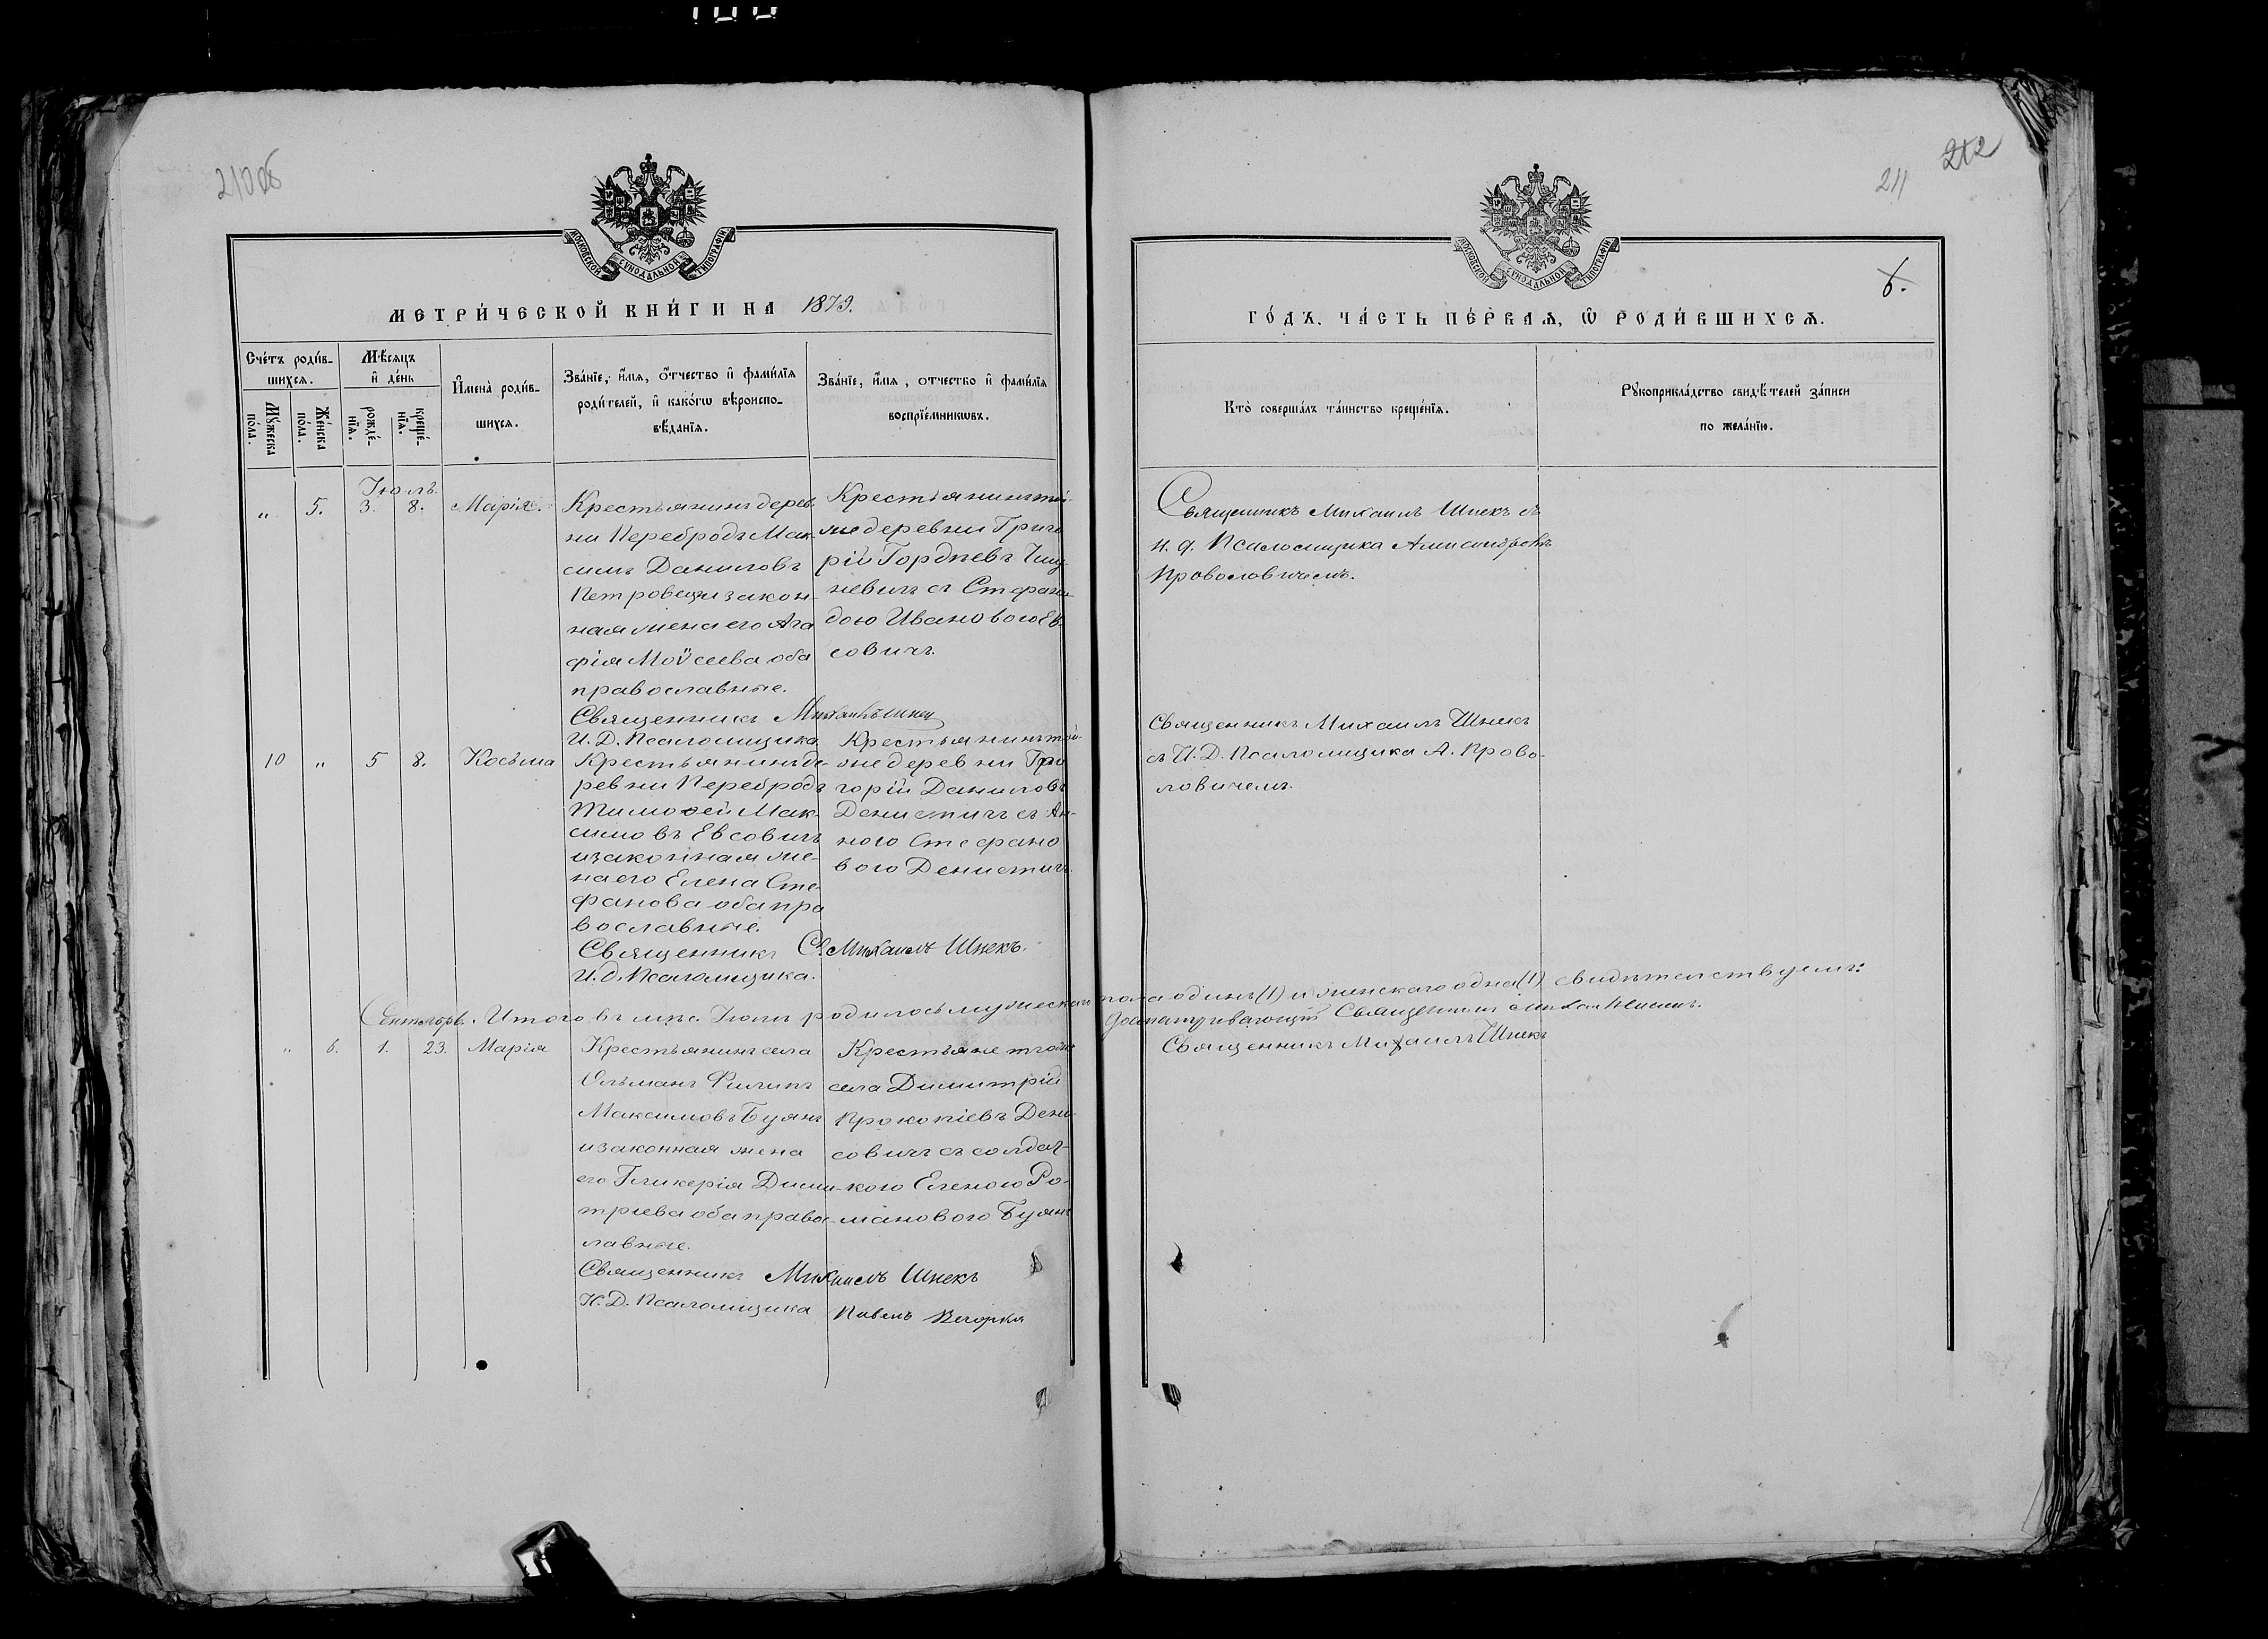 210об
211
212
МОСКОВСКОЙ СУНОДАЛЬНОЙ ТИПОГРАФІИ
МОСКОВСКОЙ СУНОДАЛЬНОЙ ТИПОГРАФІИ
6.
МЕТРИ́ЧЕСКОЙ КНИ́ГИ НА 1879.
ГО́ДЪ. ЧА́СТЬ ПЕ́РВАЯ, Ѡ РОДИ́ВШИХСЯ.
Сче́тъ роди́в-
шихся.
Му́жеска
по́ла.
Же́нска
по́ла.
Мѣ́сяцъ
и де́нь
рожде́-
нїя.
креще́-
нїя.
Имена̀ роди́в-
шихся.
Зва́нїе, и́мя, о́тчество и фами́лїя
роди́телей, и како́гѡ вѣроиспо-
вѣ́данїя.
Зва́нїе, и́мя, отчество и фами́лїя
воспрїе́мникѡвъ.
Кто̀ соверша́лъ та́инство креще́нїя.
Рꙋкоприкла́дство свидѣ́телей за́писи
по жела́нїю.
Іюль.
" 5. 3. 8. Марія.
Крестьянинъ дерев
ни Перебродъ Мак
симъ Даниловъ
Петровец и закон-
ная жена его Ага
фія Моѵсеева оба
православные.
Священникъ Михаилъ Шнекъ
И. Д. Псаломщика
Крестьянинъ той
же деревни Григо
рій Гордѣевъ
невичъ съ Стефани
дою Ивановою Ев
совичъ.
Священникъ Михаилъ Шнекъ съ
и. д. Псаломщика
Проволовичемъ.
10 " 5 8. Косьма
Крестьянинъ де-
ревни Перебродъ
Тимоѳей Мак-
симовъ Евсовичъ
и законная же-
на его Елена Сте-
фанова оба пра
вославные.
Священникъ Св. Михаилъ Шнекъ.
И. д. Псаломщика.
Крестьянинъ той-
же деревни Гри
горій Даниловъ
Денисичъ съ Ан-
ною Стефано
вою Денисичъ
Священникъ Михаилъ Шнекъ
съ И. Д. Псаломщика А. Прово-
ловичемъ.
Итого въ мцѣ Іюлѣ родилось мужескаго пола одинъ (1) и женскаго одна (1) свидѣтельствуемъ:
Священникъ Михаилъ Шнекъ.
Сентябрь.
" 6. 1. 23. Марія
Крестьянинъ села
Ольманъ Филипъ
Максимовъ Буянъ
и законная жена
его Гликерія Дими-
тріева оба правос-
лавные.
Священникъ Михаилъ Шнекъ
И. Д. Псаломщика Павелъ
Крестьяне тогоже
села Димитрій
Прокопіевъ Дени-
совичъ съ солдат-
кою Еленою Ро-
мановою Буянъ
Священникъ Михаилъ Шнекъ